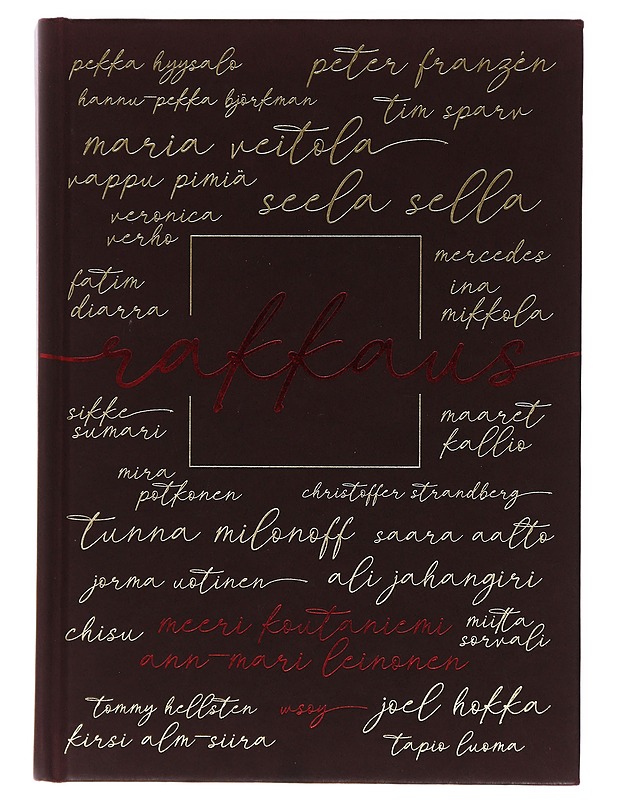 pekka hyysalo
peter franzén
hannu-pekka björkman
tim sparv
maria veitola
vappu pimiä
seela sella
veronica
verho
mercedes
fatim
diarra
ina
mikkola
rakkaus
sikke
sumari
maaret
kallio
mira
potkonen
christoffer strandberg
tunna milonoff
saara aalto
jorma uotinen
ali jahangiri
chisu
meeri koutaniemi
miitta
sorvali
ann-mari leinonen
tommy hellsten
wsoy
joel hokka
kirsi alm-siira
tapio luoma